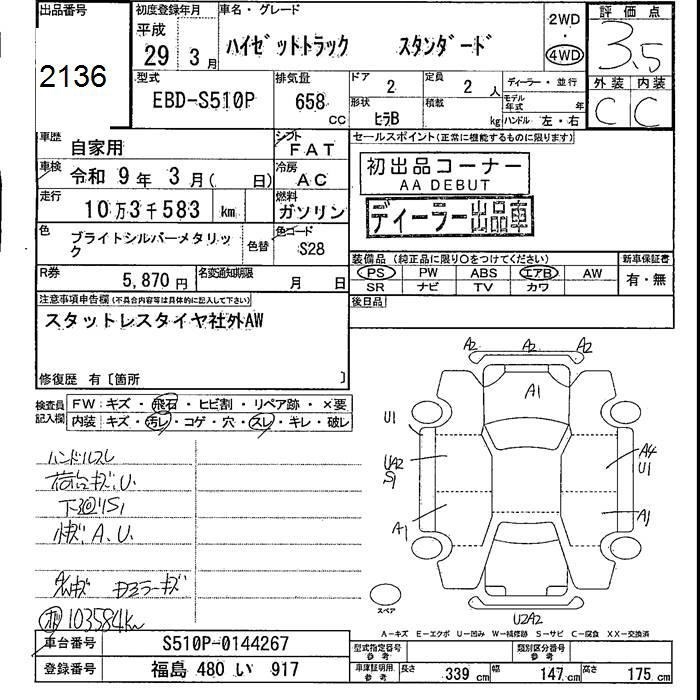 出品番号 初度登録年月 車名・グレード 2WD 評価点
平成
2136 29 年 3 月 ハイゼットトラック スタンダード 4WD 3.5
型式 排気量 ドア 2 定員 2 人 ディーラー・並行 外装 内装
EBD-S510P 658 CC 形状 ヒラB 積載 kg モデル年式 年 ハンドル 左・右 C C
車歴 自家用 シフト FAT セールスポイント(正常に機能するものに限ります)
車検 令和 9 年 3 月( 日) 冷房 AC 初出品コーナー
AA DEBUT
走行 10万3千583 km 燃料 ガソリン ディーラー出品車
色 ブライトシルバーメタリック 色替 色コード S28
装備品(純正品に限り○をつけてください) 新車保証書
R券 5,870円 名変通知期限 月 日 PS PW ABS エアB AW 有・無
SR ナビ TV カワ
注意事項申告欄(不具合内容等は具体的に記入して下さい) 後日品
スタットレスタイヤ社外AW
修復歴 有〔箇所 〕
検査員記入欄 FW:キズ・飛石・ヒビ割・リペア跡・×要
内装:キズ・汚レ・コゲ・穴・スレ・キレ・破レ
A2 A2 A2
A1
U1
UA2 S1
A4 U1
A1 A1
ハンドルスレ
荷台キズ.U.
下廻りS1
小キズ.A.U.
103584km
スペア
U2A2
A-キズ E-エクボ U-凹み W-補修跡 S-サビ C-腐食 XX-交換済
車台番号 S510P-0144267 型式指定番号 参考 類別区分番号 参考
登録番号 福島 480 い 917 車庫証明用 参考 長さ 339 cm 幅 147 cm 高さ 175 cm